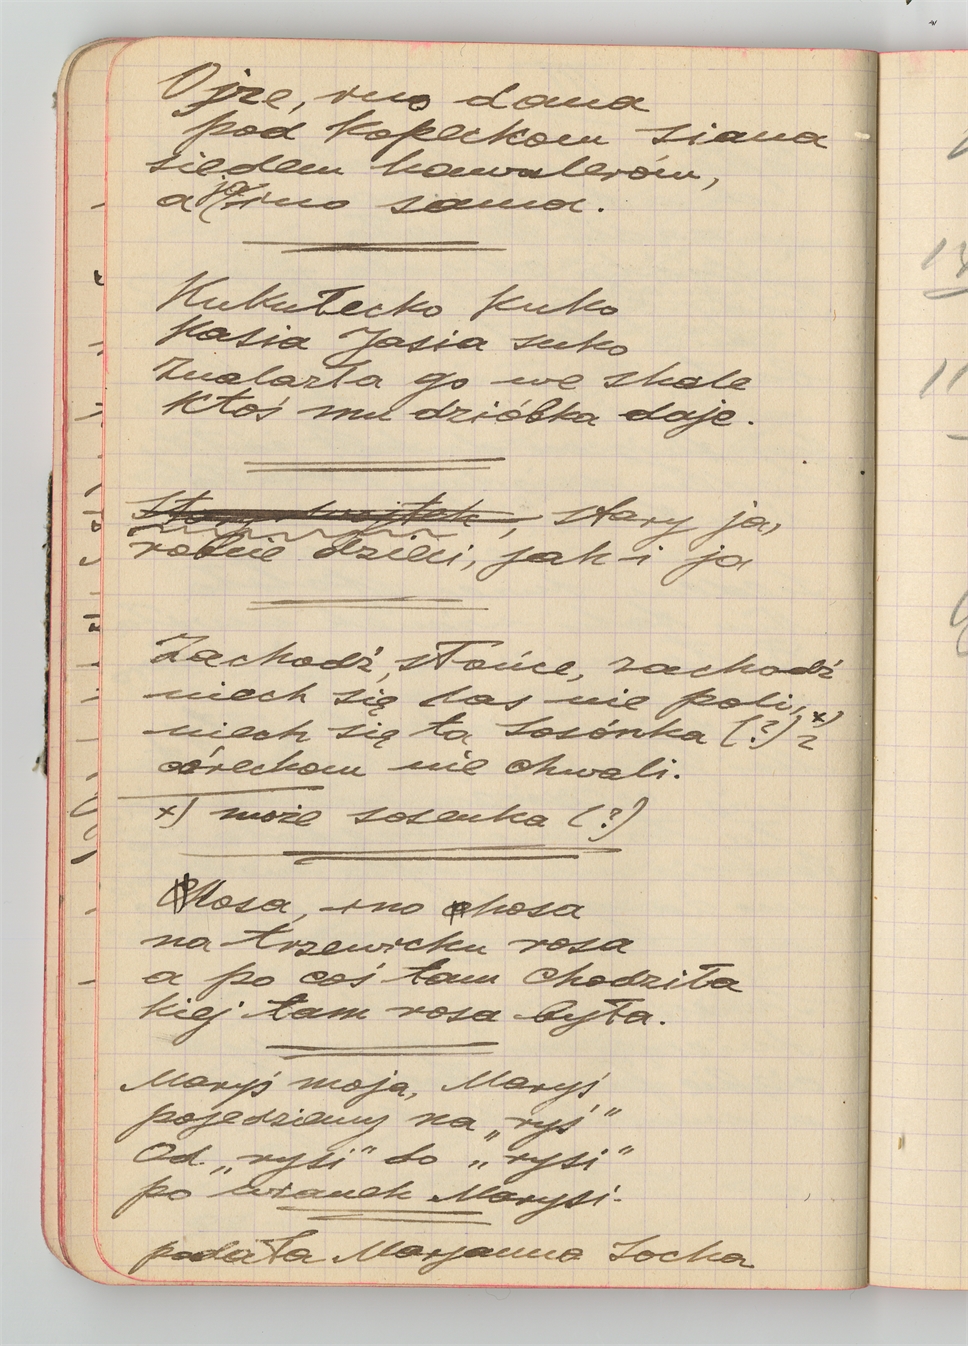 Ojze, ino dana
pod kopeckom siana
siedem kawalerów,
a ja ino sama.
Kukułecko kuko
Kasia Jasia suko
Znalazła go we skale
ktoś mu dzióbka daje.
Stary wojtek, stary ja,
robie dzieci, jak i ja
Zachodź, słońce, zachodź
niech się las nie poli,
niech się ta sosónka (?) x)
córeckom nie chwali.
x) może sosenka (?)
Kosa, ino kosa
na trzewicku rosa
a po coś tam chodziła
kiej tam rosa była.
Maryś moja, Maryś
pojedziemy na „ryś”
Od „rysi” do „rysi”
po wianek Marysi.
podała Marjanna Socha